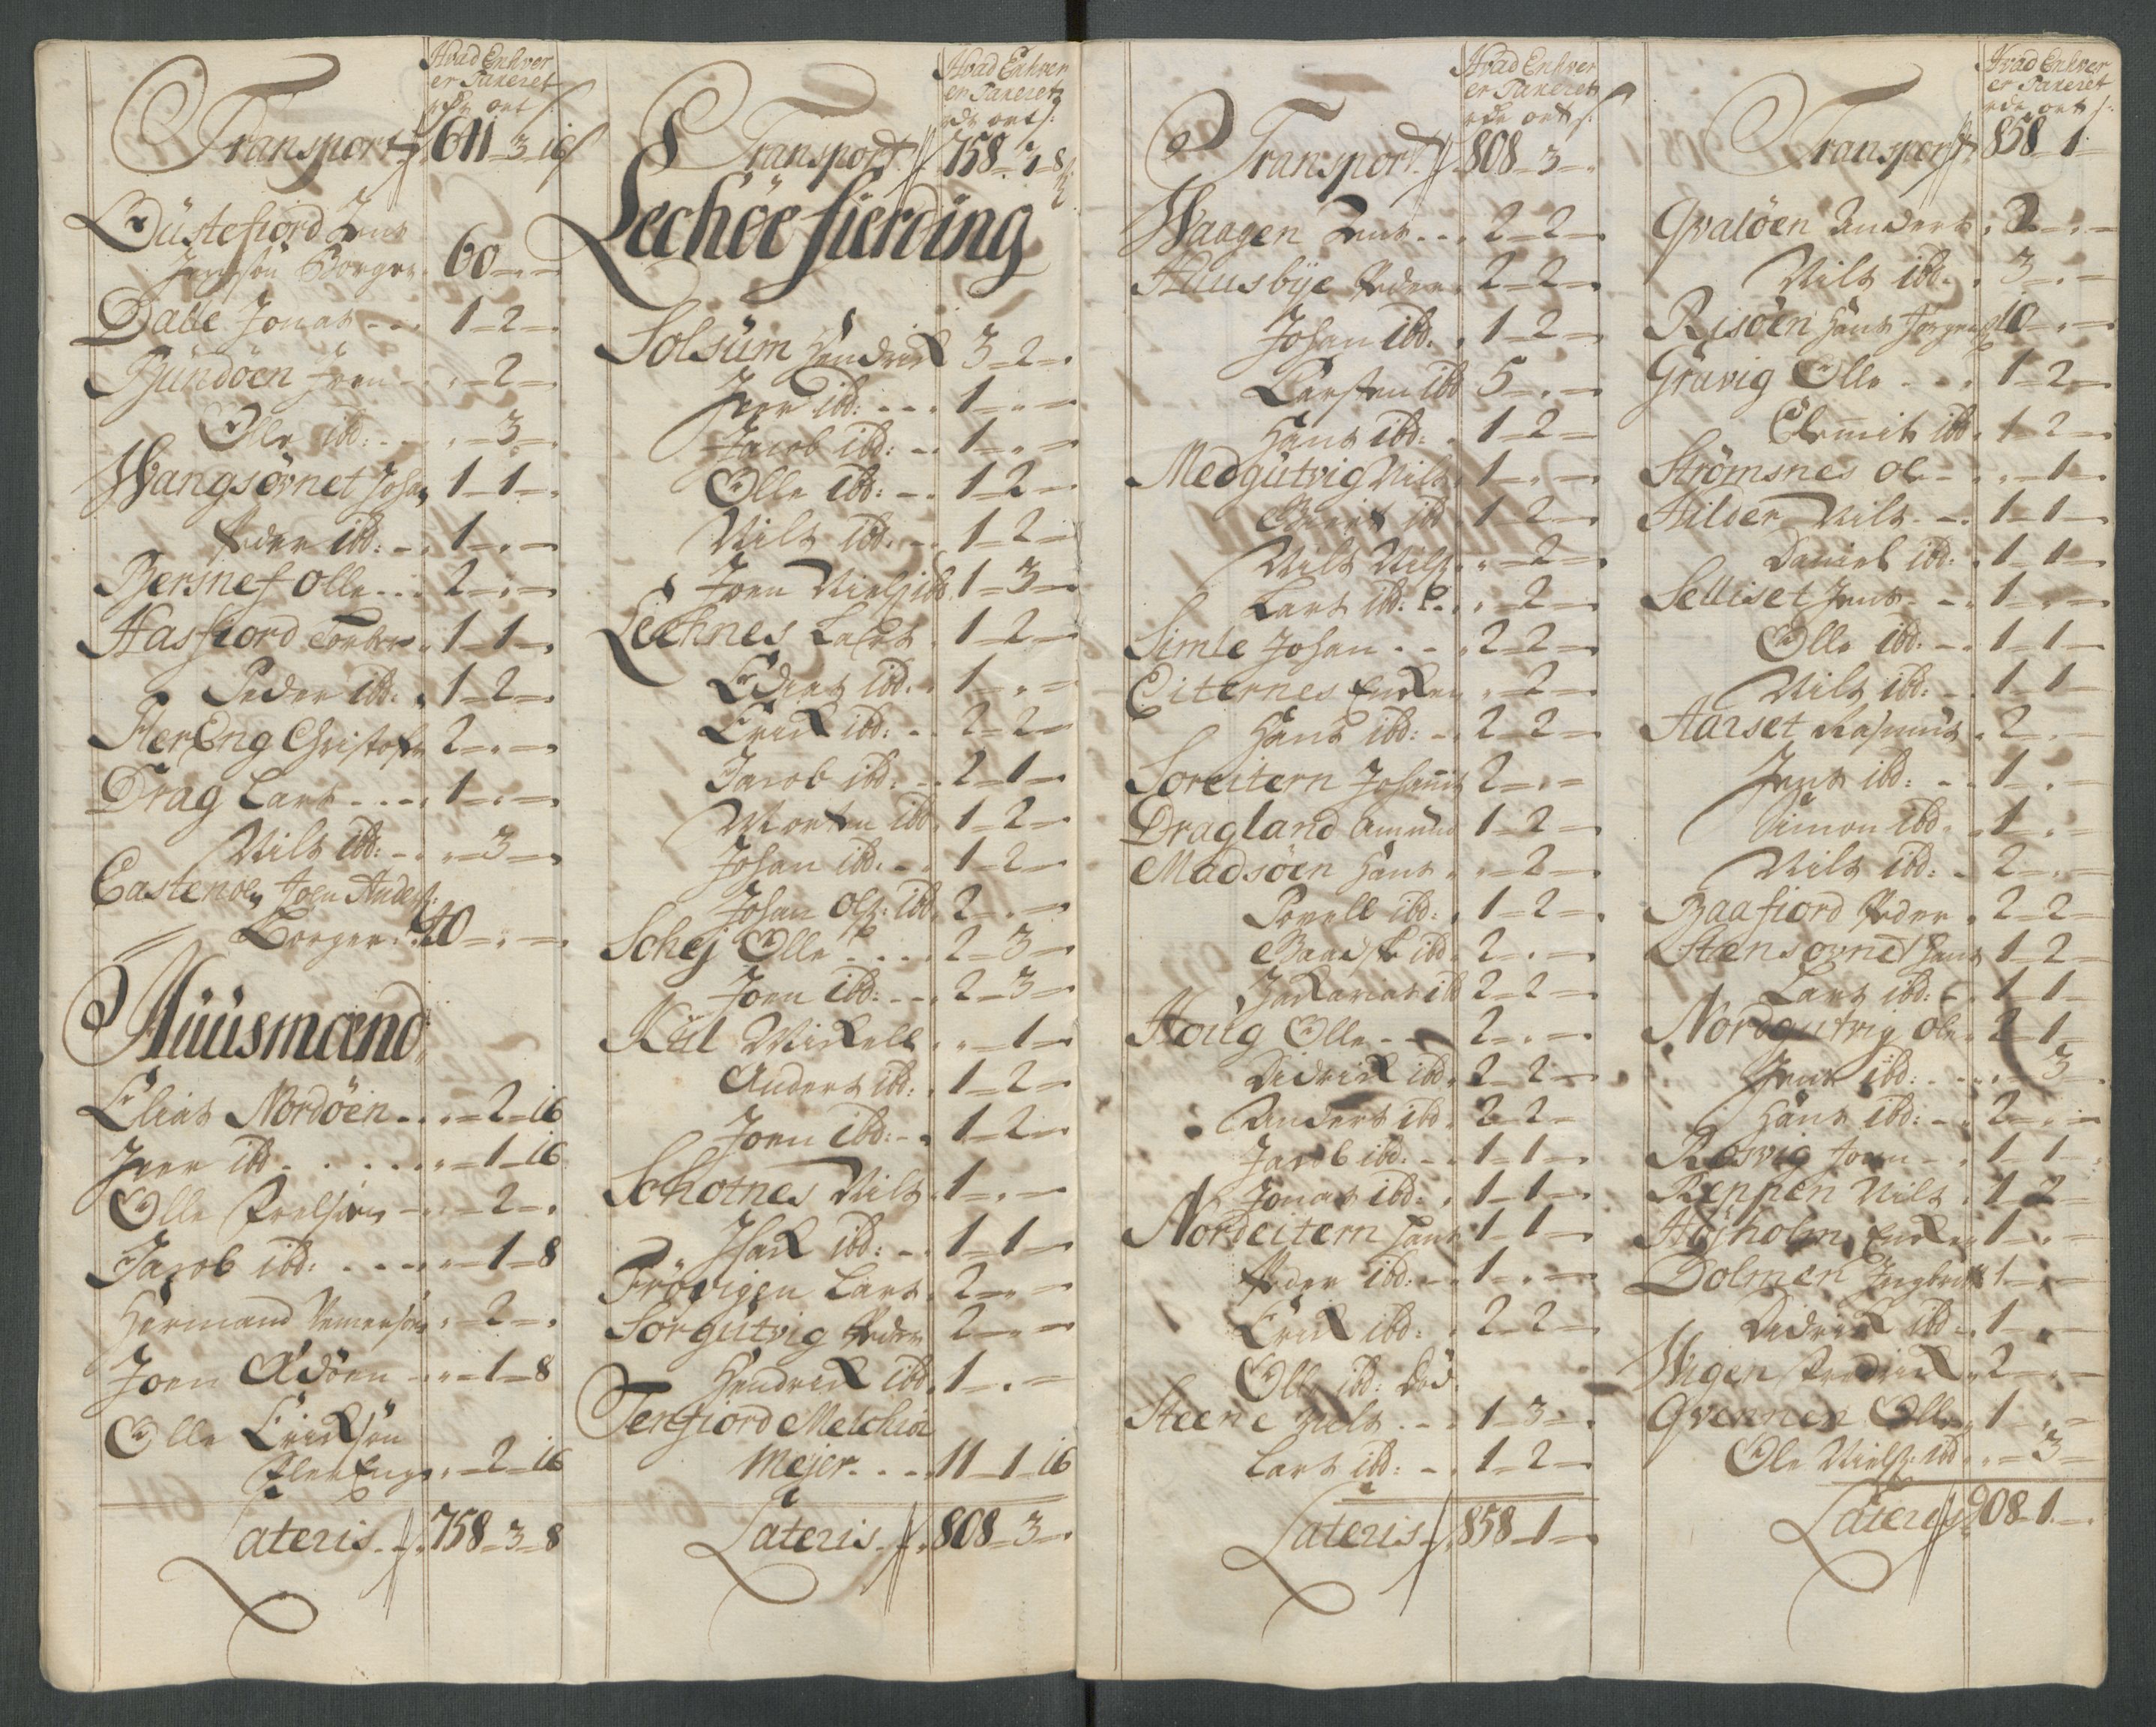 Hvad Enhver
er Taxeret
rdr ort s
Transport 611-3-16
Düstefiord Jens
Jenssön Borger 60-"-
Dalle Jonas 1-2-
Biündöen Iven "-2-
Olle ibd: "-3-
Wangsövnet Johan 1-1-
Peder ibd: 1-"-
Bersnes Olle 2-"-
Hasfiord 1-1-
Peder ibd: 1-2-
FlerEng Christofer 2-"-
Drag Lars 1-"-
Nils ibd: "-3-
Joen Anders:
Borger 40-"-
Hüüsmænd
Elias Nordöen "-2-16
Iver ibd "-1-16
Olle "-2-
Jacob ibd: "-1-8
Hermand "-2-
Joen "-1-8
Olle Erichsön
FlerEng "-2-16
Lateris 758-3-8
Hvad Enhver
er Taxeret
rdr ort s:
Transport 758-3-8
Lechöe fierding
Solsüm Hendrich 3-2-
Iver ibd: 1-"-
Jacob ibd: 1-"-
Olle ibd: 1-2-
Nils ibd: 1-2-
Joen Niels: ibd 1-3-
Lechnes Lars 1-2-
ibd: 1-"-
Erich ibd: 2-2-
Jacob ibd: 2-1-
Morten ibd 1-2-
Johan ibd: 1-2-
Johan Ols: ibd 2-"-
Schej Olle 2-3-
Joen ibd: 2-3-
Kiil Michell "-1-
Anders ibd: 1-2-
Joen ibd: 1-2-
Schotnes Nils 1-"-
Isach ibd: 1-1-
Frövigen Lars 2-"-
Sörgutvig Peder 2-"-
Hendrich ibd 1-"-
Terfiord Melchior
Mejer 11-1-16
Lateris 808-3-
Hvad Enhver
er Taxeret
rdr ort s:
Transport 808-3-
Waagen Jens 2-2-
Huusbÿe Peder 2-2-
Johan ibd: 1-2-
Karsten ibd 5-"-
Hans ibd: 1-2-
Medgutvig Nils 1-"-
ibd 1-2-
Nils Nils: "-2-
Lars ibd: "-2-
Simle Johan 2-2-
Eiternes "-2-
Hans ibd: 2-2-
Soreitern Johannis 2-"-
Dragland Amund 1-2-
Madsöen Hans "-2-
Povell ibd: 1-2-
ibd 2-"-
Zacharias ibd 2-2-
Houg Olle 2-"-
Didrich ibd 2-2-
Anders ibd 2-2-
Jacob ibd: 1-1-
Jonas ibd: 1-1-
Nordeitern Hans 1-1-
Peder ibd: 1-"-
Erich ibd: 2-2-
Olle ibd: död
Steene Nils 1-3-
Lars ibd: 1-2-
Lateris 858-1-
Hvad Enhver
er Taxeret
rdr ort s:
Transport 858-1-
Qvalöen Anders 2-"-
Nils ibd: 3-"-
Risöen Hans Jörgens: 10-"-
Gravig Olle 1-2-
Clemit ibd 1-2-
Strömsnes Ole "-1-
Hilder Nils 1-1-
Daniel ibd: 1-1-
Selliset Jens 1-"-
Olle ibd: 1-1-
Nils ibd: 1-1-
Aarset Rasmus 2-"-
Jens ibd: 1-"-
Simon ibd: 1-"-
Nils ibd: 2-"-
Baafiord Peder 2-2-
Stensovnet Hans 1-2-
Lars ibd: 1-1-
Nordgutvig Ole 2-1-
Jens ibd: "-3-
Hans ibd: 2-"-
Rosvig Joen 1-1-
Reppen Nils 1-2-
Højholm 1-"-
Dolmen Ingbricht 1-"-
Didrich ibd: 1-"-
Wigen Fredrich 2-"-
Qvennen Olle 1-"-
Ole Niels: ibd "-3-
Lateris 908-1-